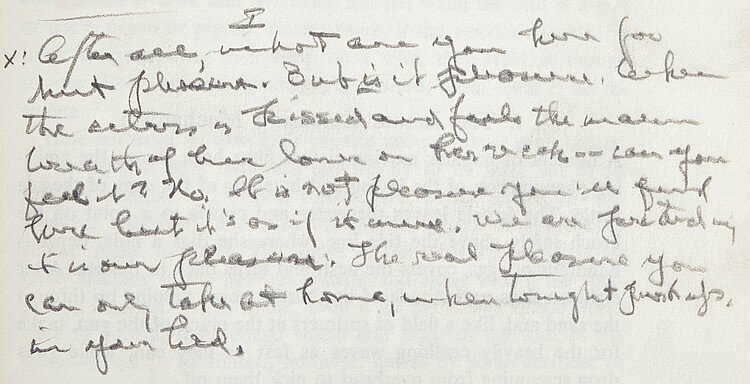 I
X: After all, what are you here for
but pleasure. But is it pleasure. When
the actress is kissed and feels the warm
breath of her lover on her neck -- can you
feel it? No. It is not pleasure you'll find
here but it's as if it were. We are
it is our pleasure. The real pleasure you
can only take at home, when tonight perhaps,
in your bed.